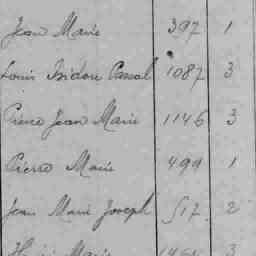 Jean Marie 397 1
Louis Isidore Pascal 1087 3
Pierre Jean Marie 1146 3
Pierre Marie 499 1
Jean Marie Joseph 517 2
Marie 3